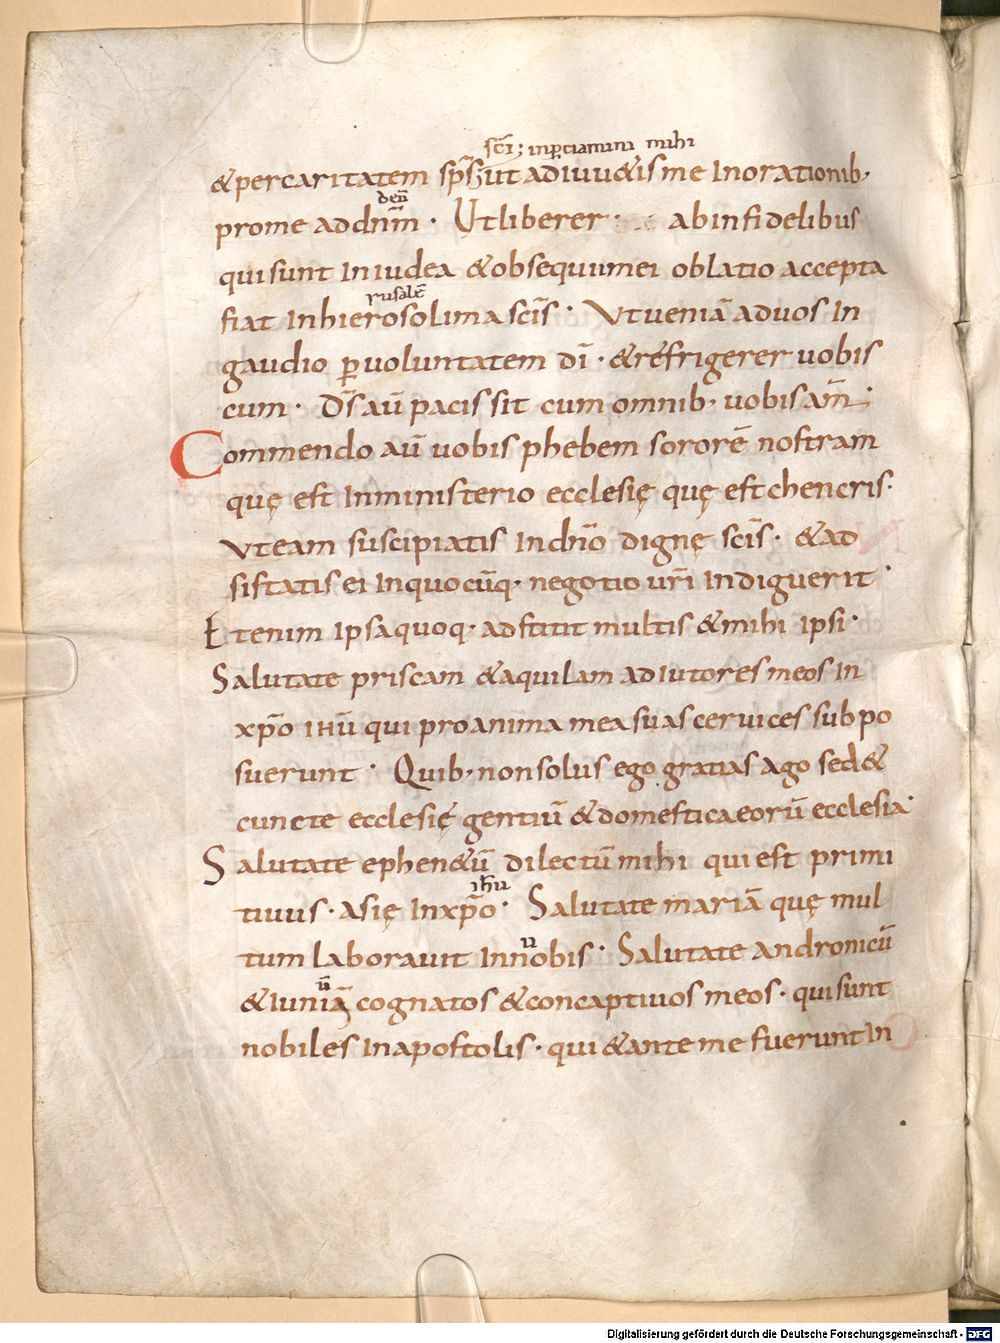 sc̄i; inꝑciamini mihi
&percaritatem sp̄s ut adiuu&is me In orationib·
dēū
prome ad dn̄m · Ut liberer · ab infidelibus
qui sunt In iudea &obsequii mei oblatio accepta
rusalē
fiat In hierosolima sc̄is · Ut ueniā ad uos In
gaudio ꝑ uoluntatem dī · &refrigerer uobis
cum · Ds̄ aū pacis sit cum omnib· uobis am̄ ·
Commendo aū uobis phebem sororē nostram
quę est In ministerio ecclesię quę est chencris·
Ut eam suscipiatis In dn̄o dignę sc̄is · &ad
sistatis ei In quocūq· negotio ur̄i Indiguerit ·
Etenim Ipsa quoq· adstitit multis &mihi ipsi ·
Salutate priscam &aquilam adiutores meos In
xp̄o ihū qui pro anima mea suas ceruices subpo
suerunt · Quib· non solus ego gratias ago sed&
cuncte ecclesię gentiū &domestica eorū ecclesia·
Salutate ephen&ū dilectū mihi qui est primi
ihū
tiuus · asię In xp̄o · Salutate mariā quę mul
u
tum laborauit In nobis · Salutate andronicū
ū
&Iuniā cognatos &concaptiuos meos · qui sunt
nobiles In apostolis · qui &ante me fuerunt In
Digitalisierung gefördert durch die Deutsche Forschungsgemeinschaft - DFG